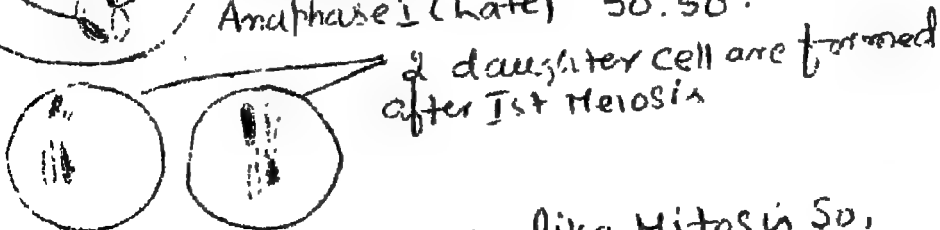 Anaphase I (Late) 50.50.
2 daughter cell are formed
after Ist Meiosis
like Mitosis So,